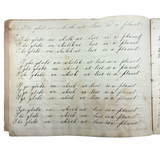 The globe on which we live is a planet
The globe on which we live is a planet
The globe on which we live is a planet
The globe on which we live is a planet
The globe on which we live is a planet
The globe on which we live is a planet
The globe on which we live is a planet
The globe on which we live is a planet
The globe on which we live is a planet
The globe on which we live is a planet